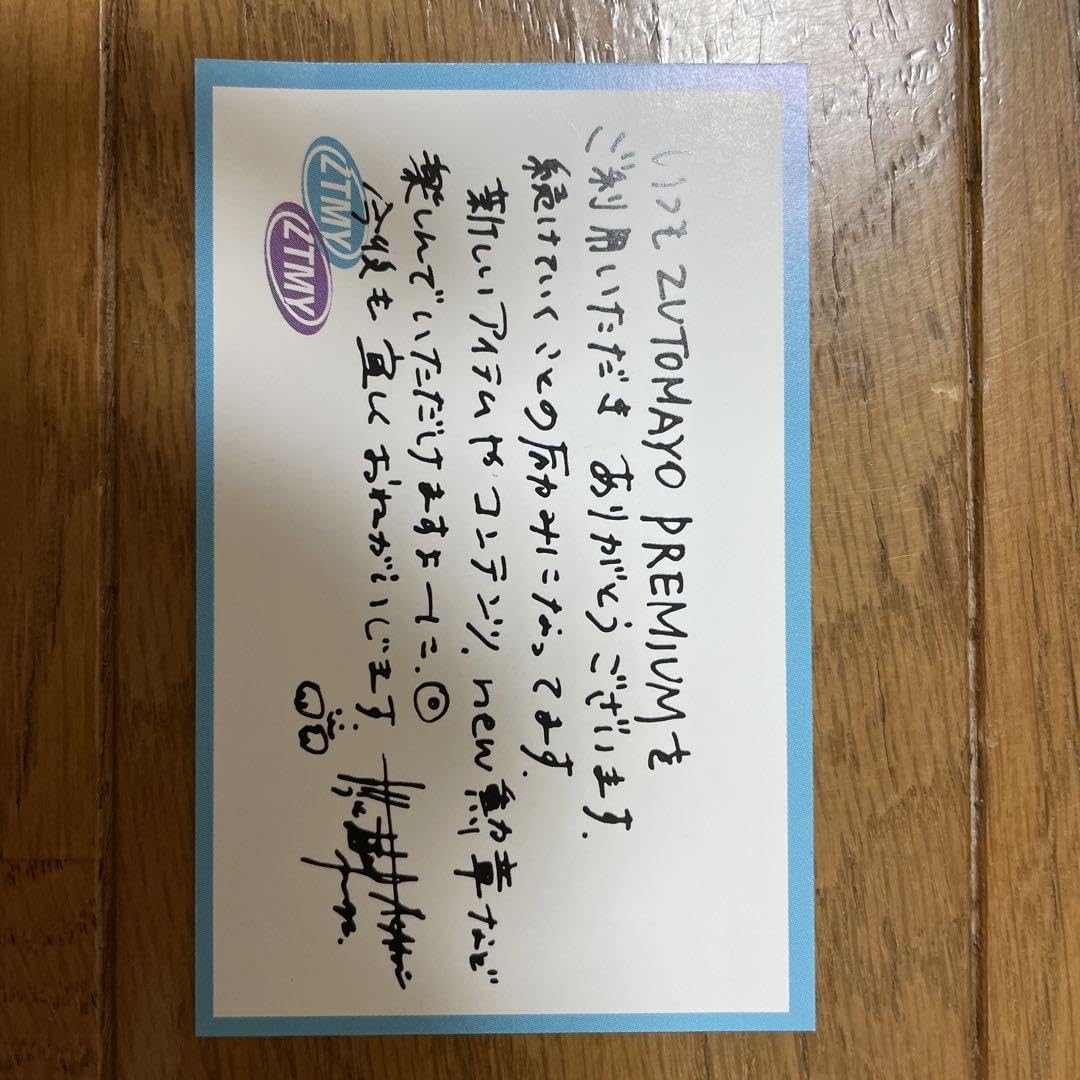 いつも ZUTOMAYO PREMIUM を
ご利用いただき ありがとうございます.
続けていくことの励みになってます.
新しいアイテムや コンテンツ, new 勲章など
楽しんでいただけますよーに.
今後も 宜しくおねがいします
ZTMY
ZTMY